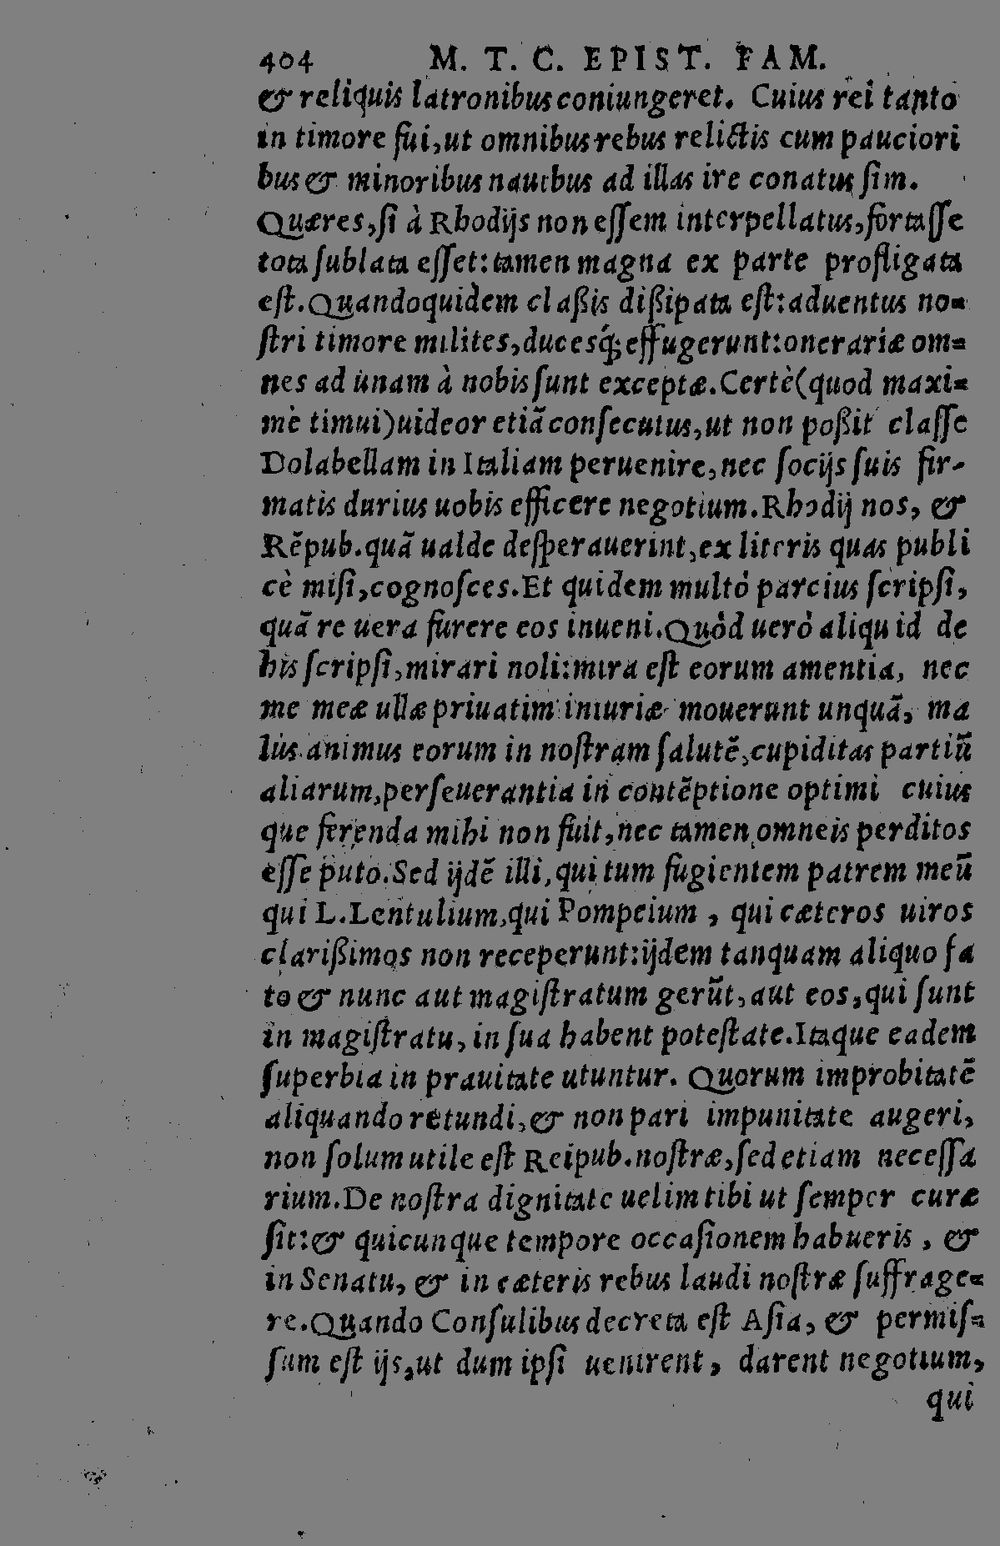 404 M. T. C. EPIST. FAM.
& reliquis latronibus coniungeret. Cuius rei tanto
in timore fui, ut omnibus rebus relictis cum pauciori
bus & minoribus nauibus ad illas ire conatus ſim.
Quæres, ſi à Rhodijs non eſſem interpellatus, fortaſſe
tota ſublata eſſet: tamen magna ex parte profligata
eſt. Quandoquidem claßis dißipata eſt: aduentus no-
ſtri timore milites, ducesq́; effugerunt: onerariæ om-
nes ad unam à nobis ſunt exceptæ. Certè (quod maxi-
mè timui) uideor etiā conſecutus, ut non poßit claſſe
Dolabellam in Italiam peruenire, nec ſocijs ſuis fir-
matis durius uobis efficere negotium. Rhodij nos, &
Rēpub. quā ualde deſperauerint, ex literis quas publi
cè miſi, cognoſces. Et quidem multò parcius ſcripſi,
quā re uera furere eos inueni. Quòd uerò aliquid de
his ſcripſi, mirari noli: mira eſt eorum amentia, nec
me meæ ullæ priuatim iniuriæ mouerunt unquā, ma
lus animus eorum in noſtram ſalutē, cupiditas partiū
aliarum, perſeuerantia in contēptione optimi cuius
que ferenda mihi non fuit, nec tamen omneis perditos
eſſe puto. Sed ijdē illi, qui tum fugientem patrem meū
qui L. Lentulium, qui Pompeium, qui cæteros uiros
clarißimos non receperunt: ijdem tanquam aliquo fa
to & nunc aut magiſtratum gerūt, aut eos, qui ſunt
in magiſtratu, in ſua habent poteſtate. Itaque eadem
ſuperbia in prauitate utuntur. Quorum improbitatē
aliquando retundi, & non pari impunitate augeri,
non ſolum utile eſt Reipub. noſtræ, ſed etiam neceſſa
rium. De noſtra dignitate uelim tibi ut ſemper curæ
ſit: & quicunque tempore occaſionem habueris, &
in Senatu, & in cæteris rebus laudi noſtræ ſuffrage-
re. Quando Conſulibus decreta eſt Aſia, & permiſ-
ſum eſt ijs, ut dum ipſi uenirent, darent negotium,
qui